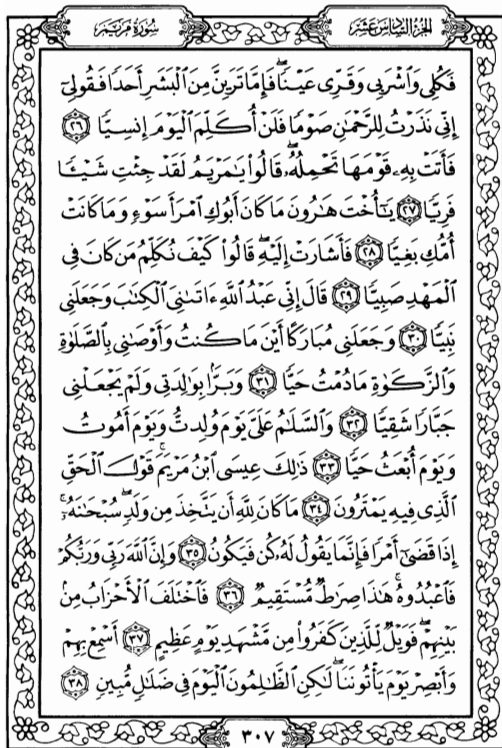 الجزء السادس عشر
سورة مريم
فَكُلِي وَاشْرَبِي وَقَرِّي عَيْنًا ۖ فَإِمَّا تَرَيِنَّ مِنَ الْبَشَرِ أَحَدًا فَقُولِي
إِنِّي نَذَرْتُ لِلرَّحْمَٰنِ صَوْمًا فَلَنْ أُكَلِّمَ الْيَوْمَ إِنسِيًّا ٢٦
فَأَتَتْ بِهِ قَوْمَهَا تَحْمِلُهُ ۖ قَالُوا يَٰمَرْيَمُ لَقَدْ جِئْتِ شَيْـًٔا
فَرِيًّا ٢٧ يَٰٓأُخْتَ هَٰرُونَ مَا كَانَ أَبُوكِ امْرَأَ سَوْءٍ وَمَا كَانَتْ
أُمُّكِ بَغِيًّا ٢٨ فَأَشَارَتْ إِلَيْهِ ۖ قَالُوا كَيْفَ نُكَلِّمُ مَن كَانَ فِي
الْمَهْدِ صَبِيًّا ٢٩ قَالَ إِنِّي عَبْدُ اللَّهِ ءَاتَىٰنِيَ الْكِتَٰبَ وَجَعَلَنِي
نَبِيًّا ٣٠ وَجَعَلَنِي مُبَارَكًا أَيْنَ مَا كُنتُ وَأَوْصَٰنِي بِالصَّلَوٰةِ
وَالزَّكَوٰةِ مَا دُمْتُ حَيًّا ٣١ وَبَرًّۢا بِوَٰلِدَتِي وَلَمْ يَجْعَلْنِي
جَبَّارًا شَقِيًّا ٣٢ وَالسَّلَٰمُ عَلَيَّ يَوْمَ وُلِدتُّ وَيَوْمَ أَمُوتُ
وَيَوْمَ أُبْعَثُ حَيًّا ٣٣ ذَٰلِكَ عِيسَى ابْنُ مَرْيَمَ ۚ قَوْلَ الْحَقِّ
الَّذِي فِيهِ يَمْتَرُونَ ٣٤ مَا كَانَ لِلَّهِ أَن يَتَّخِذَ مِن وَلَدٍ ۖ سُبْحَٰنَهُ ۚ
إِذَا قَضَىٰٓ أَمْرًا فَإِنَّمَا يَقُولُ لَهُ كُن فَيَكُونُ ٣٥ وَإِنَّ اللَّهَ رَبِّي وَرَبُّكُمْ
فَاعْبُدُوهُ ۚ هَٰذَا صِرَٰطٌ مُّسْتَقِيمٌ ٣٦ فَاخْتَلَفَ الْأَحْزَابُ مِنۢ
بَيْنِهِمْ ۖ فَوَيْلٌ لِّلَّذِينَ كَفَرُوا مِن مَّشْهَدِ يَوْمٍ عَظِيمٍ ٣٧ أَسْمِعْ بِهِمْ
وَأَبْصِرْ يَوْمَ يَأْتُونَنَا ۖ لَٰكِنِ الظَّٰلِمُونَ الْيَوْمَ فِي ضَلَٰلٍ مُّبِينٍ ٣٨
٣٠٧